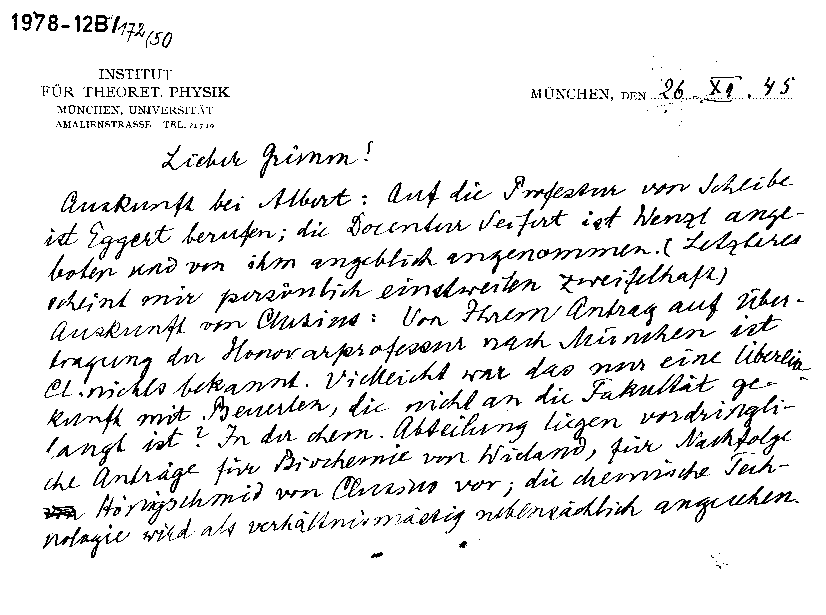 1978-12B/172(50
INSTITUT
FÜR THEORET. PHYSIK
MÜNCHEN, UNIVERSITÄT
AMALIENSTRASSE TEL.
MÜNCHEN, DEN 26. XI. 45
Lieber Grimm!
Auskunft bei Albert: Auf die Professur von Scheibe
ist Eggert berufen; die Docentur Seifert ist Wenzl ange-
boten und von ihm angeblich angenommen. (Letzteres
scheint mir persönlich einstweilen zweifelhaft)
Auskunft von Clusius: Von Ihrem Antrag auf Über-
tragung der Honorarprofessur nach München ist
Cl. nichts bekannt. Vielleicht war das nur eine Überein-
kunft mit Beuerlen, die nicht an die Fakultät ge-
langt ist? In der chem. Abteilung liegen vordringli-
che Anträge für Biochemie von Wieland, für Nachfolge
Hönigschmid von Clusius vor; die chemische Tech-
nologie wird als verhältnismässig nebensächlich angesehen.